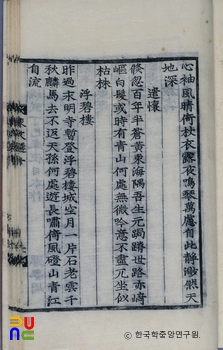 心袖風晴倚杖衣露夜鳴琴萬慮自此靜
照天
地深
遣懷
倏忽百年半蒼黃東海隅吾生元跼蹐世路亦崎
嶇白髮或時有青山何處無微吟意不盡兀坐似
枯株
浮碧樓
昨過永明寺暫登浮碧樓城空月一片石老雲千
秋麟馬去不返天孫何處遊長嘯倚風磴山青江
自流
PU NC
한국학중앙연구원